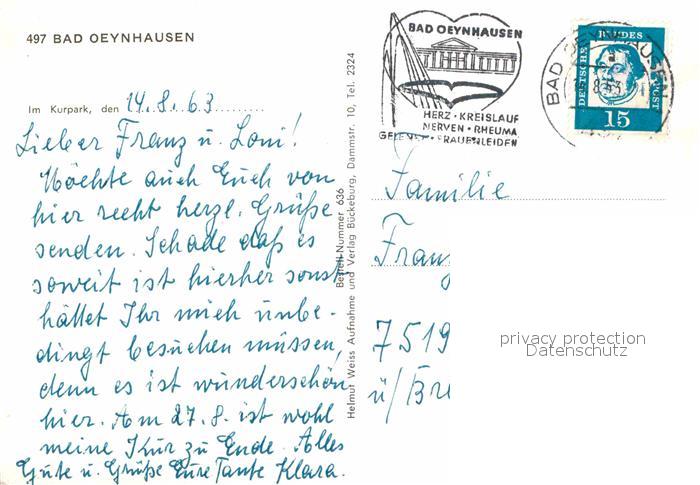 497 BAD OEYNHAUSEN
Im Kurpark, den 14.8.63
Lieber Franz u. Loni!
Möchte auch Euch von
hier recht herzl. Grüße
senden. Schade daß es
soweit ist hierher sonst
hättet Ihr mich unbe-
dingt besuchen müssen,
denn es ist wunderschön
hier. Am 27.8. ist wohl
meine Kur zu Ende. Alles
Gute u. Grüße Eure Tante Klara.
Helmut Weiss Aufnahme und Verlag Bückeburg, Dammstr. 10, Tel. 2324
Bestell-Nummer 636
BAD OEYNHAUSEN
HERZ · KREISLAUF
NERVEN · RHEUMA
GELENK · FRAUENLEIDEN
BAD OEYNHAUSEN
DEUTSCHE BUNDESPOST
15
Familie
Franz
7519
ü/Bre
privacy protection
Datenschutz